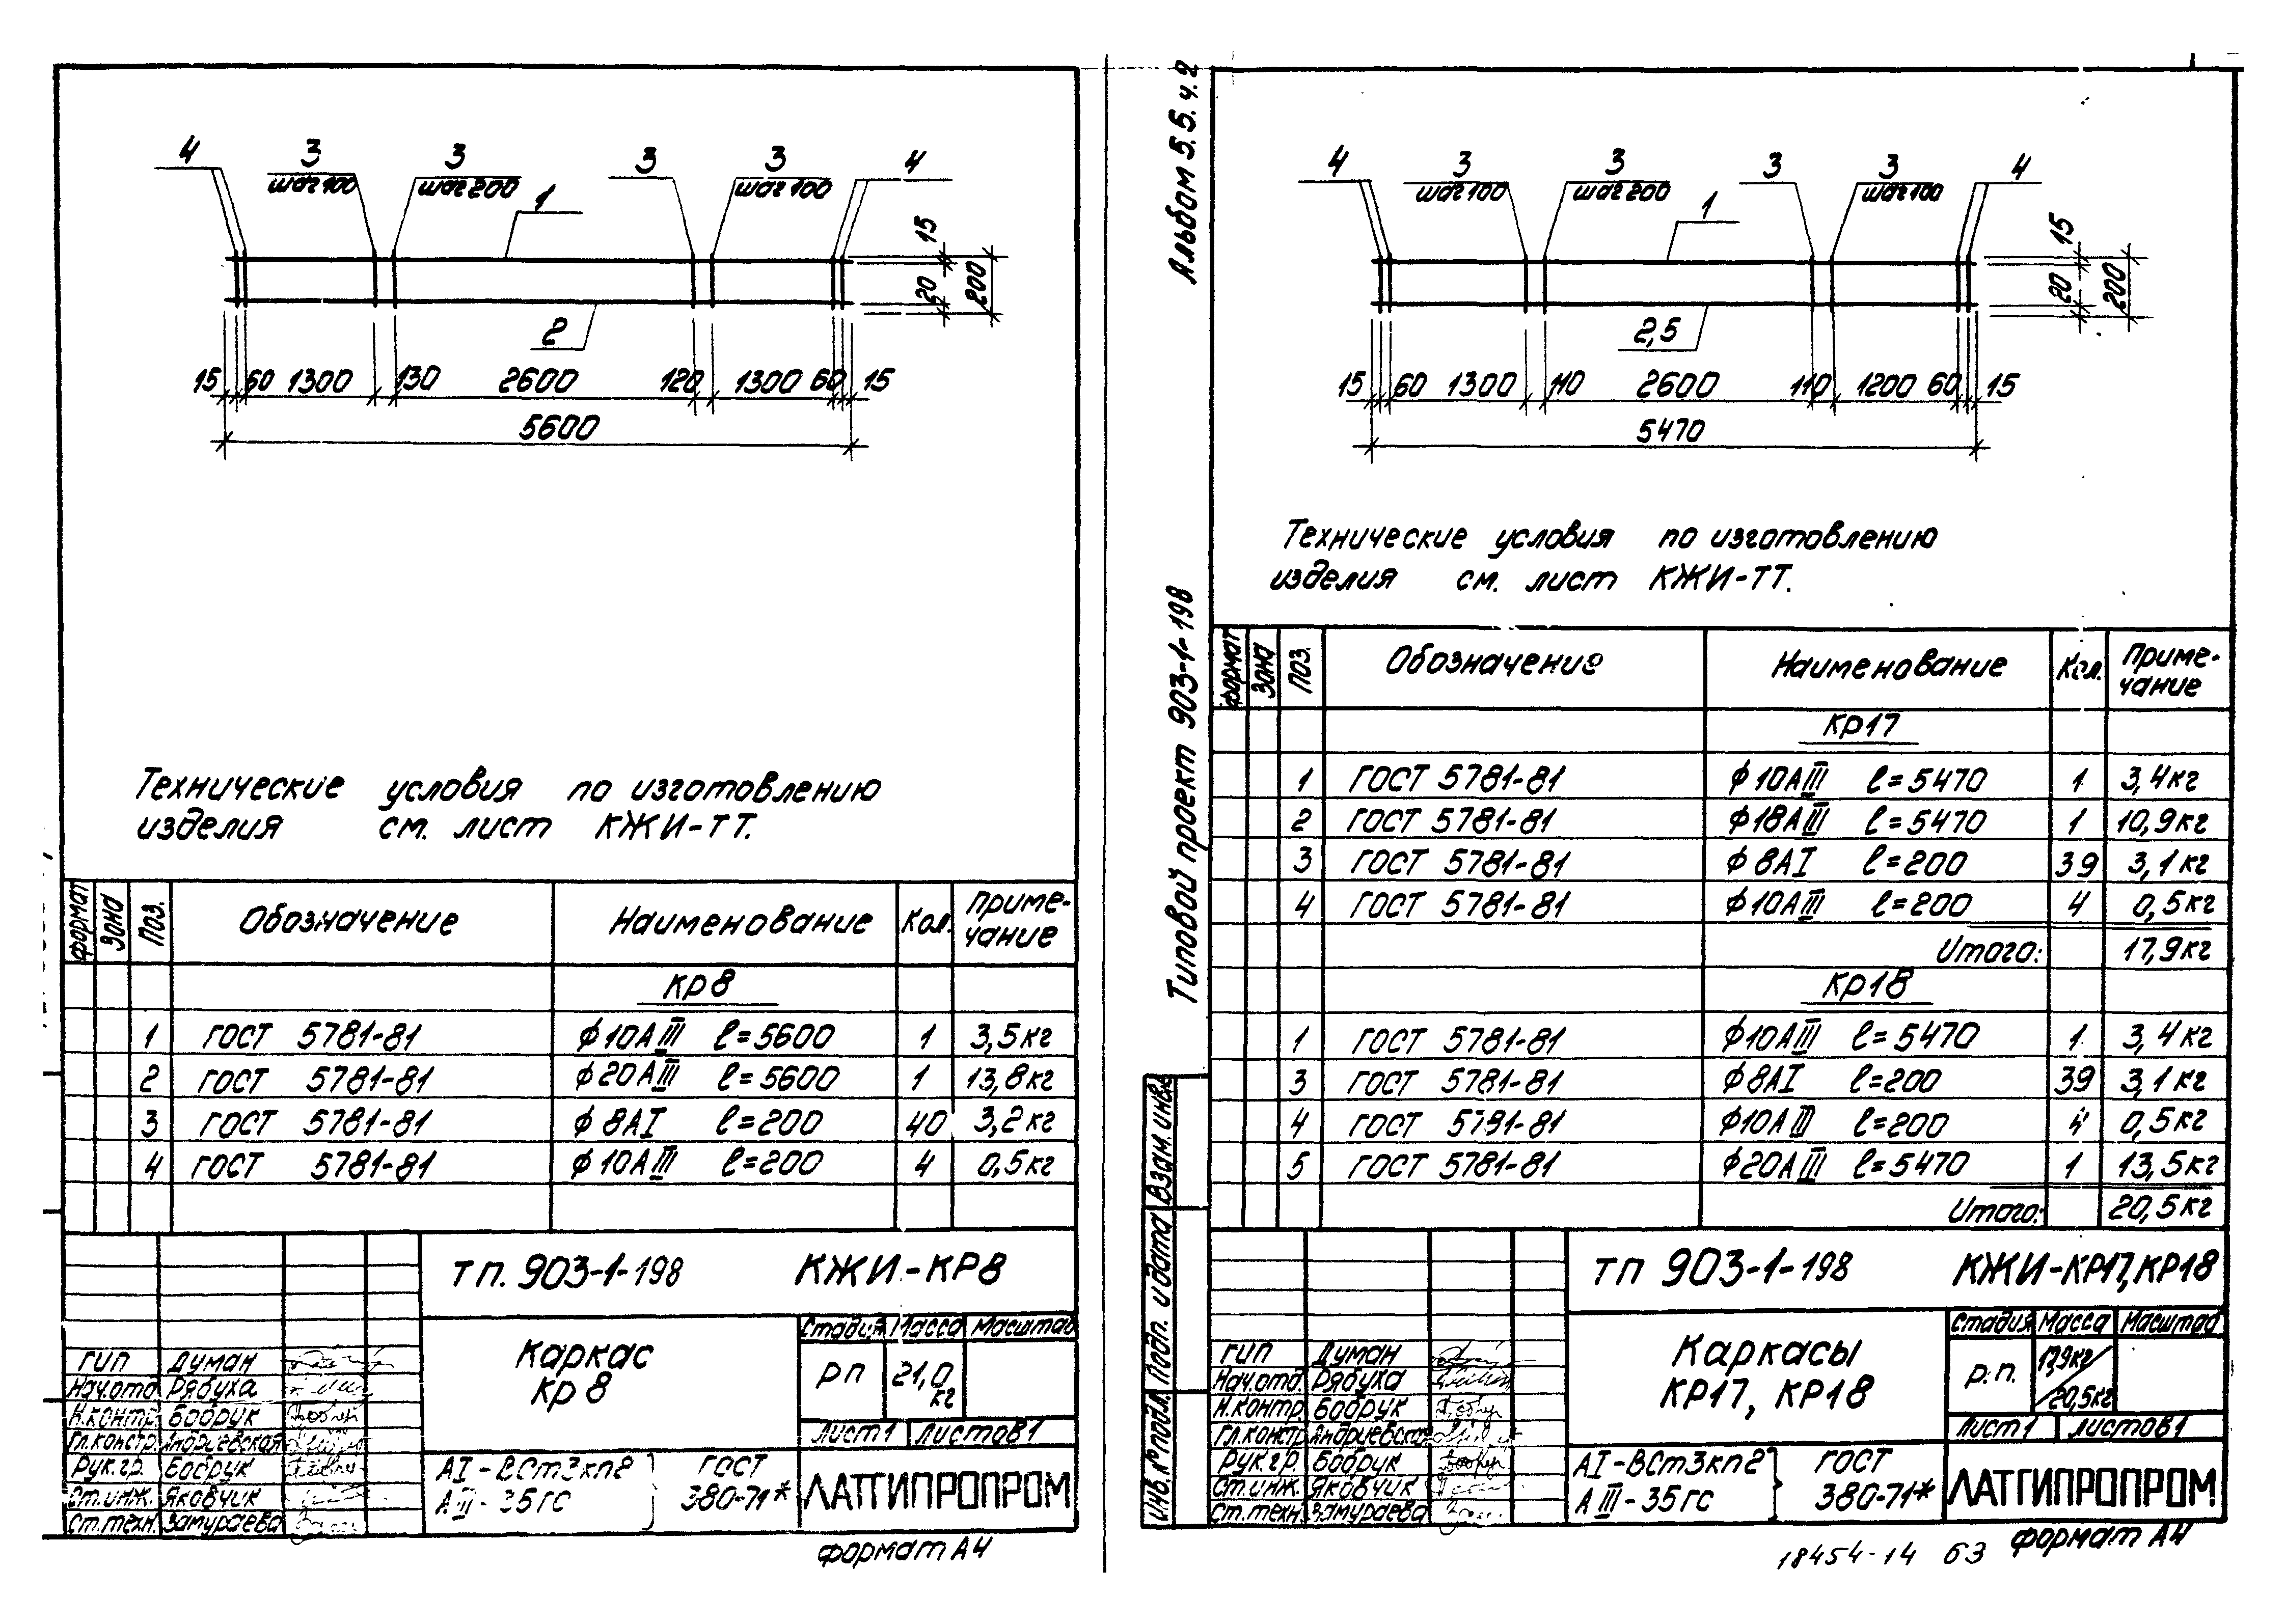 4 3 3 3 3 4
шаг 100 шаг 200 шаг 100
1
15
20 200
2
15 60 1300 130 2600 120 1300 60 15
5600
Технические условия по изготовлению
изделия см. лист КЖИ-ТТ.
формат Зона Поз. Обозначение Наименование Кол. Приме-
чание
КР8
1 ГОСТ 5781-81 ϕ10АIII ℓ=5600 1 3,5кг
2 ГОСТ 5781-81 ϕ20АIII ℓ=5600 1 13,8кг
3 ГОСТ 5781-81 ϕ8АI ℓ=200 40 3,2кг
4 ГОСТ 5781-81 ϕ10АIII ℓ=200 4 0,5кг
ТП. 903-1-198 КЖИ-КР8
Каркас
КР8
Стадия Масса Масштаб
РП 21,0
кг
Лист 1 Листов 1
ГИП Думан
Нач.отд. Рябуха
Н.контр. Бобрук
Гл.констр. Андриевская
Рук.гр. Бобрук
Ст.инж. Яковчик
Ст.техн. Замураева
АI-ВСт3кп2 ГОСТ
АIII-35ГС 380-71*
ЛАТГИПРОПРОМ
формат А4
Альбом 5.5.ч.2
Типовой проект 903-1-198
Взам. инв.
Подп. и дата
Инв. № подл.
4 3 3 3 3 4
шаг 100 шаг 200 шаг 100
1
15
20 200
2,5
15 60 1300 110 2600 110 1200 60 15
5470
Технические условия по изготовлению
изделия см. лист КЖИ-ТТ.
формат Зона Поз. Обозначение Наименование Кол. Приме-
чание
КР17
1 ГОСТ 5781-81 ϕ10АIII ℓ=5470 1 3,4кг
2 ГОСТ 5781-81 ϕ18АIII ℓ=5470 1 10,9кг
3 ГОСТ 5781-81 ϕ8АI ℓ=200 39 3,1кг
4 ГОСТ 5781-81 ϕ10АIII ℓ=200 4 0,5кг
Итого: 17,9кг
КР18
1 ГОСТ 5781-81 ϕ10АIII ℓ=5470 1 3,4кг
3 ГОСТ 5781-81 ϕ8АI ℓ=200 39 3,1кг
4 ГОСТ 5781-81 ϕ10АIII ℓ=200 4 0,5кг
5 ГОСТ 5781-81 ϕ20АIII ℓ=5470 1 13,5кг
Итого: 20,5кг
ТП 903-1-198 КЖИ-КР17,КР18
Каркасы
КР17, КР18
Стадия Масса Масштаб
Р.П. 17,9кг
20,5кг
Лист 1 Листов 1
ГИП Думан
Нач.отд. Рябуха
Н.контр. Бобрук
Гл.констр. Андриевская
Рук.гр. Бобрук
Ст.инж. Яковчик
Ст.техн. Замураева
АI-ВСт3кп2 ГОСТ
АIII-35ГС 380-71*
ЛАТГИПРОПРОМ
18454-14 63 формат А4